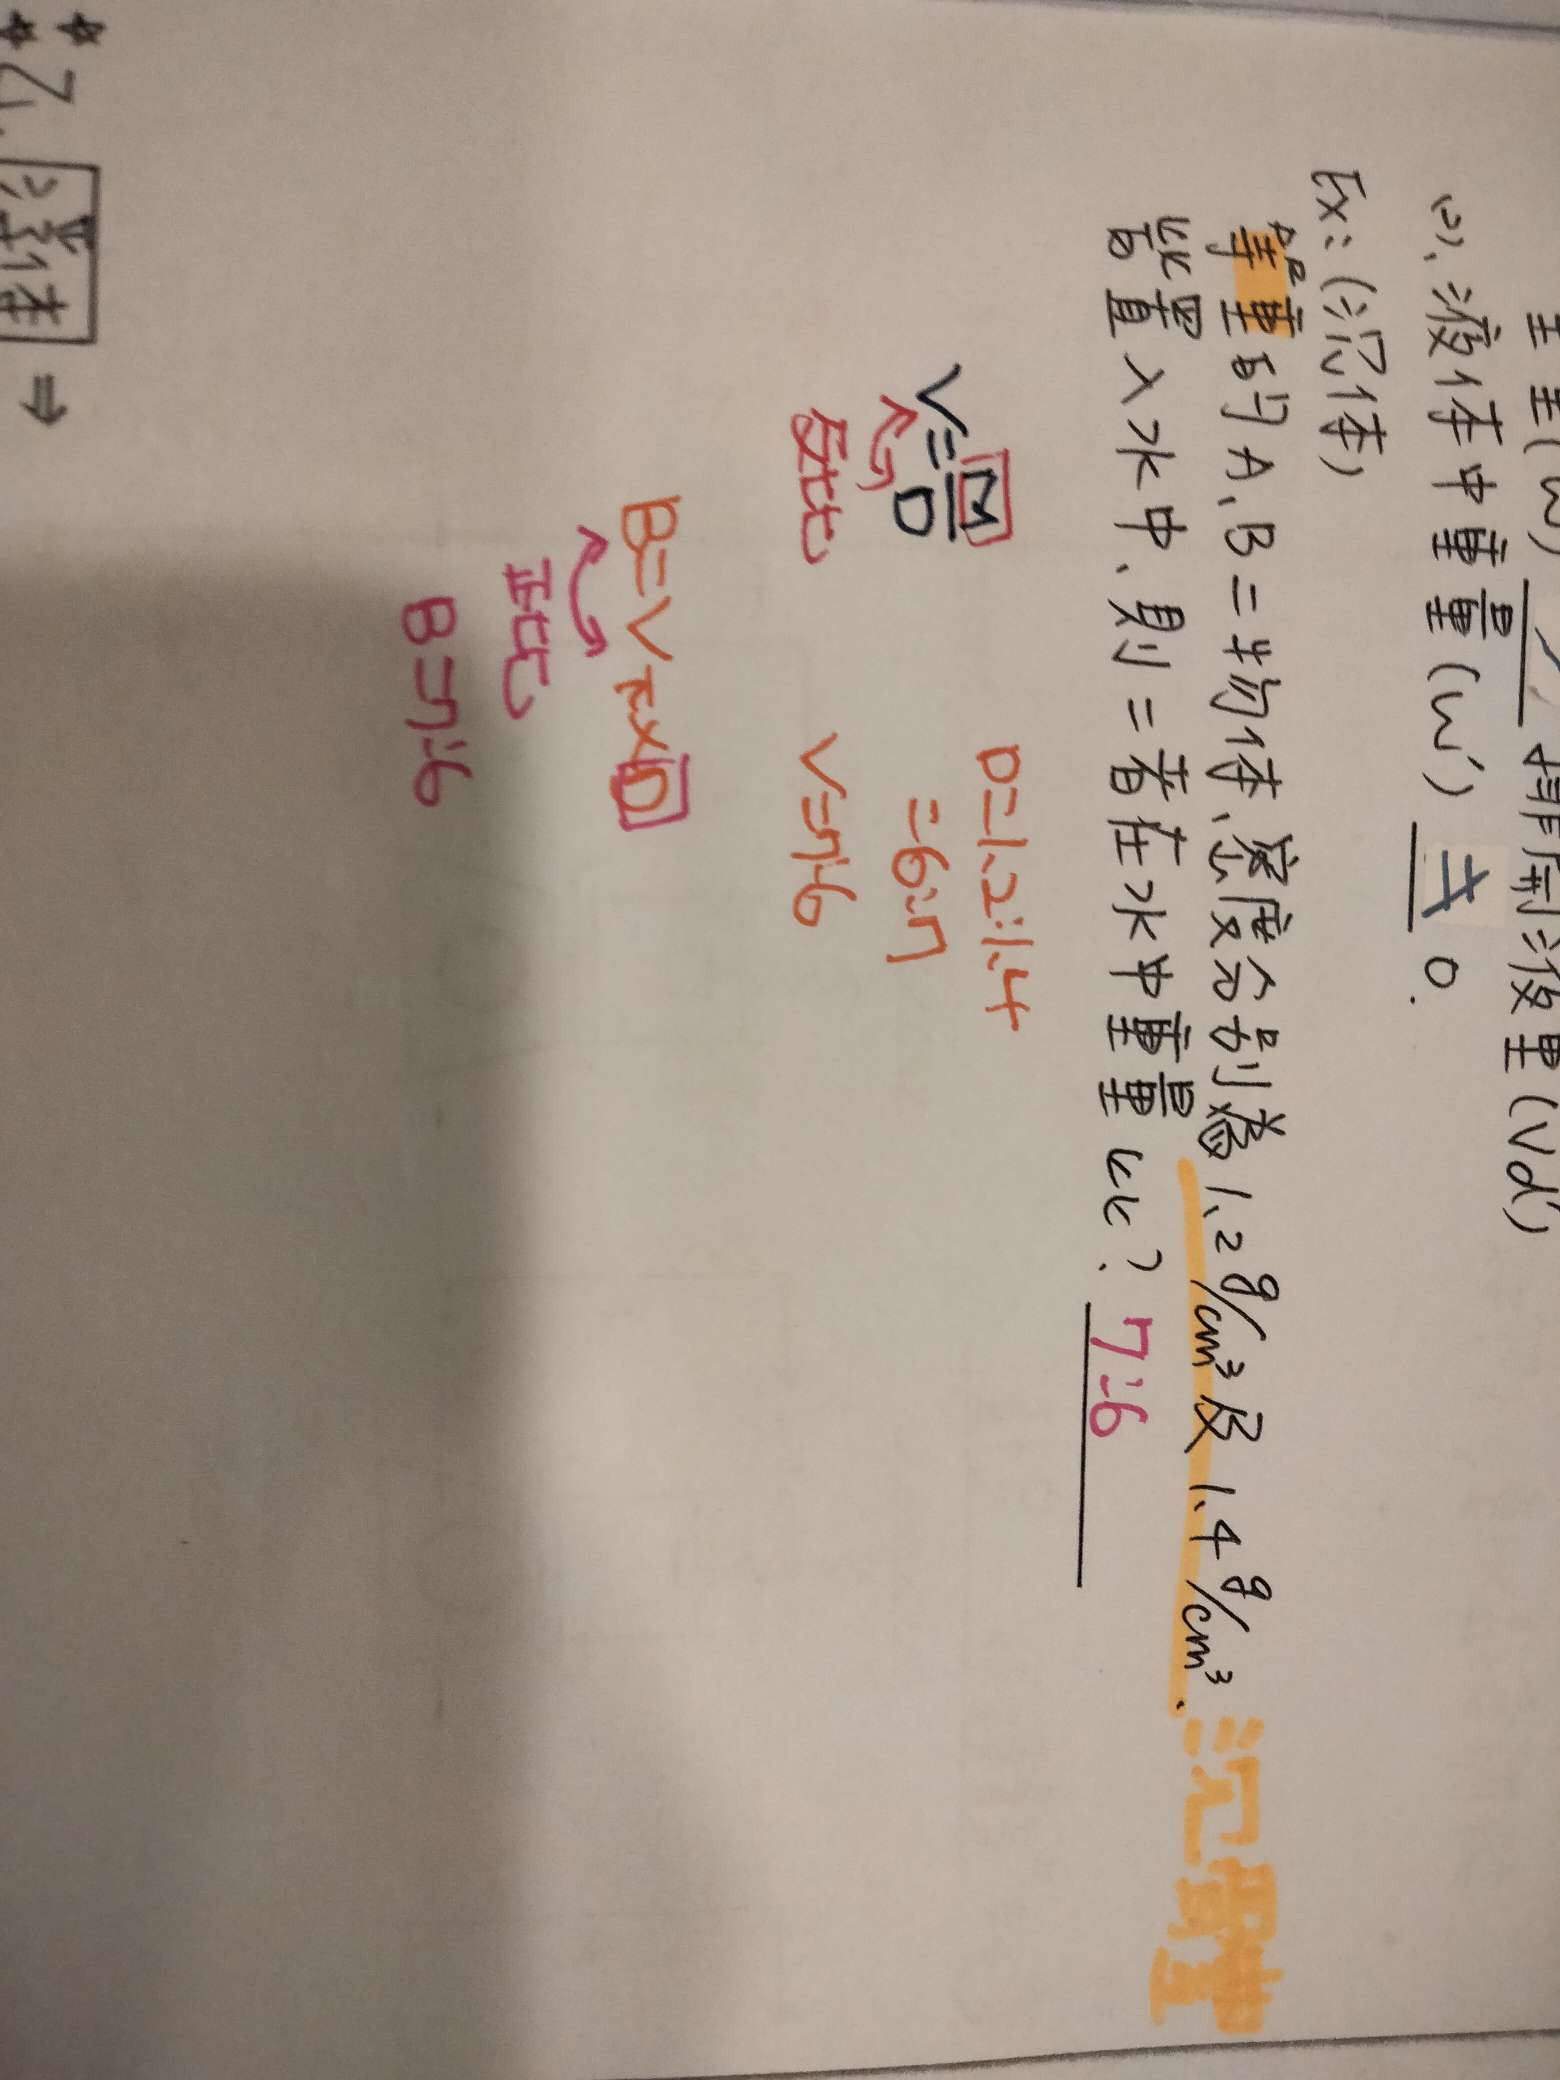 排開液重(Vd')
(2)、液体中重量(W') 大 0.
Ex：(沉体)
等重的A、B二物体、密度分別為1.2g/cm³及1.4g/cm³. 沉體
皆置入水中、則二者在水中重量比? 7:6
V=M/D
反比
D=1.2:1.4
=6:7
V=7:6
B=V下×D
正比
B=7:6
⇒